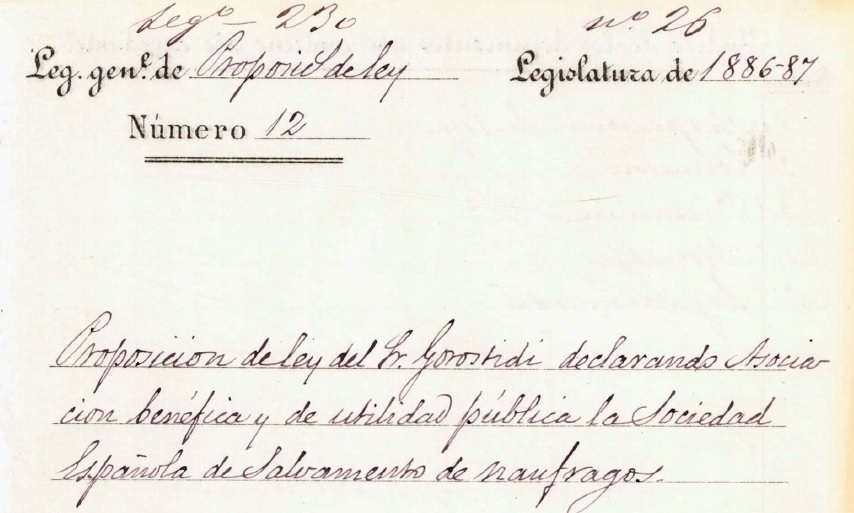 Legº 230 nº 26
Leg. genl. de Propones de ley Legislatura de 1886-87
Número 12
Proposicion de ley del Sr. Gorostidi declarando Asocia-
cion benéfica y de utilidad pública la Sociedad
Española de Salvamento de naufragos.